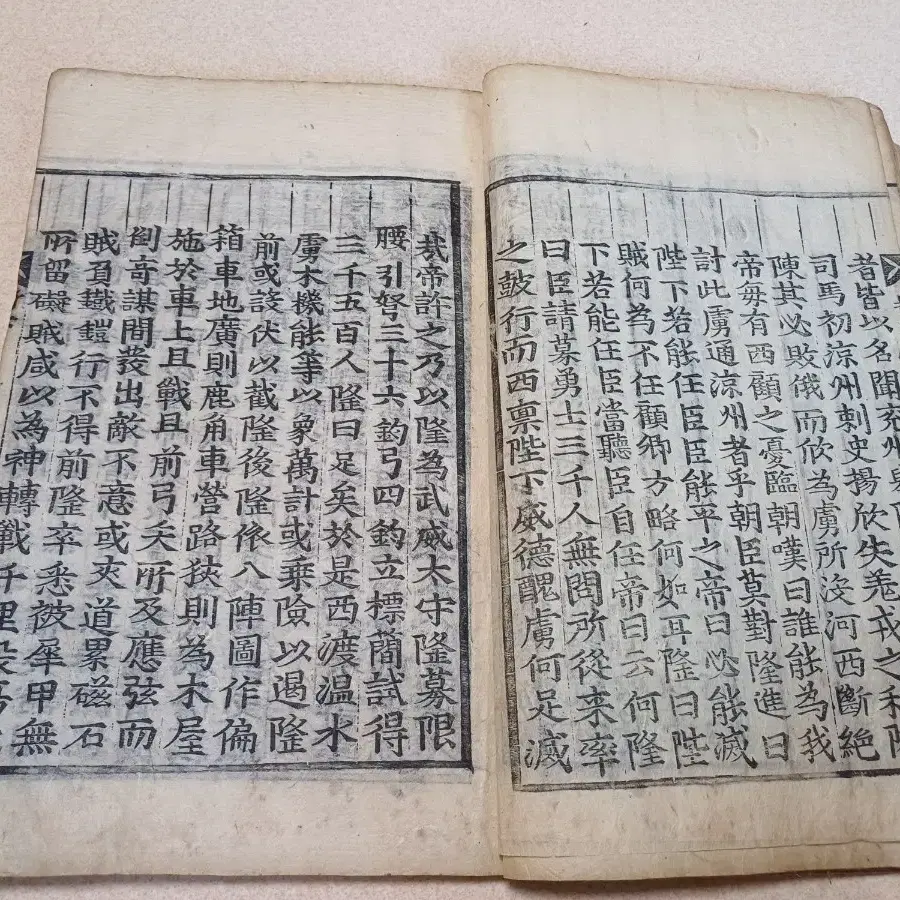 者皆以名聞兗州
司馬初涼州刺史揚欣失羗戎之和隆
陳其必敗俄而欣為虜所沒河西斷絕
帝每有西顧之憂臨朝嘆曰誰能為我
討此虜通涼州者乎朝臣莫對隆進曰
陛下若能任臣臣能平之帝曰必能滅
賊何為不任顧卿方略何如耳隆曰陛
下若能任臣當聽臣自任帝曰云何隆
曰臣請募勇士三千人無問所從来率
之鼓行而西稟陛下威德醜虜何足滅
哉帝許之乃以隆為武威太守隆募限
腰引弩三十六鈞弓四鈞立標蕳試得
三千五百人隆曰足矣於是西渡溫水
虜木機能等以衆萬計或乗險以遏隆
前或設伏以截隆後隆依八陣圖作偏
箱車地廣則鹿角車營路狹則為木屋
施於車上且戰且前弓矢所及應弦而
倒奇謀間發出敵不意或夾道累磁石
賊負鐵鎧行不得前隆卒悉被犀甲無
所留礙賊咸以為神轉戰千里殺